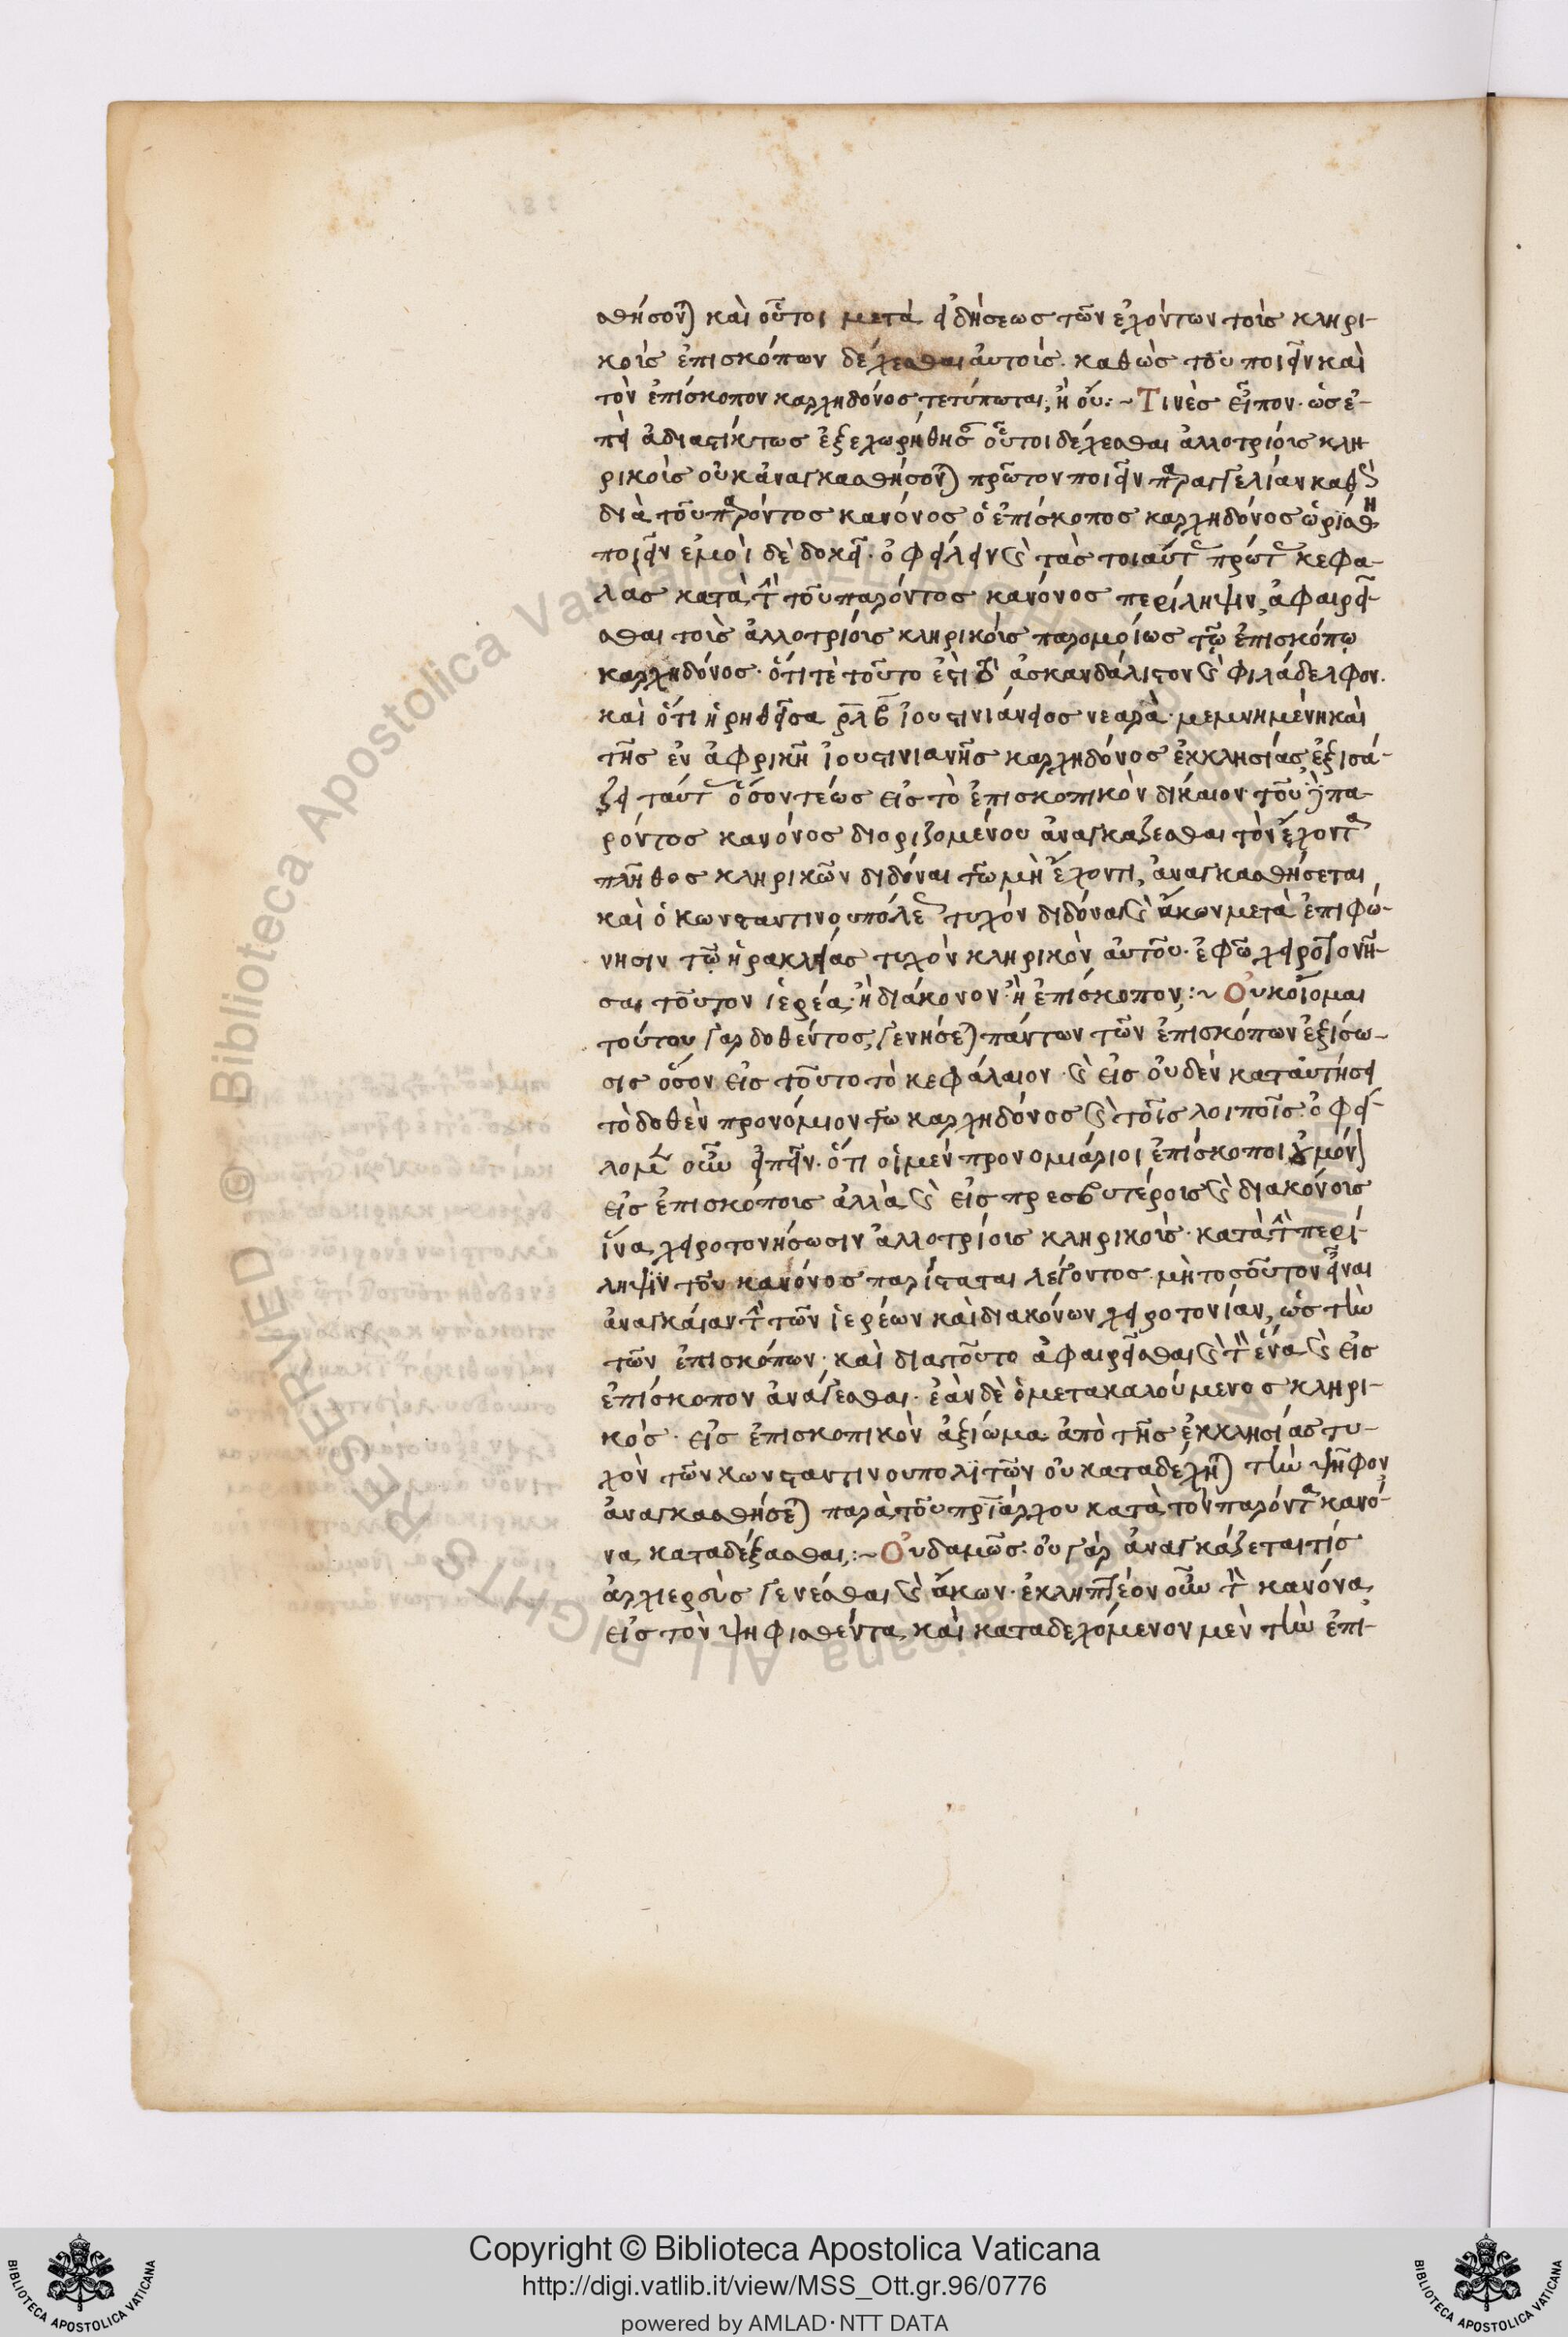 σθήσον) καὶ οὗτοι μετὰ εἰδήσεως τῶν ἐχόντων τοὺς κληρι-
κοὺς ἐπισκόπων δέχεσθαι αὐτούς. καθὼς τοῦ ποιεῖν καὶ
τὸν ἐπίσκοπον καρχηδόνος τετύπωται, ἢ οὔ:~ Τινὲς εἶπον. ὡς ἐ-
πεὶ ἀδιαστίκτως ἐξεχωρήθησ οὗτοι δέχεσθαι ἀλλοτρίους κλη
ρικοὺς οὐκ ἀναγκασθήσον) πρῶτον ποιεῖν παραγγελίαν καθὼς
διὰ τοῦ παρόντος κανόνος ὁ ἐπίσκοπος καρχηδόνος ὡρίσθη
ποιεῖν ἐμοὶ δὲ δοκεῖ. ὀφείλειν καὶ τὰς τοιαύτ πρώτ κεφα-
λὰς κατὰ τὴν τοῦ παρόντος κανόνος περίληψιν, ἀφαιρεῖ-
σθαι τοὺς ἀλλοτρίους κληρικοὺς παρομοίως τῷ ἐπισκόπῳ
καρχηδόνος. ὅτι τὲ τοῦτο ἐστὶ ἀσκανδάλιστον καὶ φιλάδελφον.
καὶ ὅτι ἡ ρηθεῖσα ρλβ ἰουστινιάνειος νεαρὰ. μεμνημένη καὶ
τῆς ἐν ἀφρικῇ ἰουστινιανῆς καρχηδόνος ἐκκλησίας ἐξισά-
ζει ταύτ ὅσον τέως εἰς τὸ ἐπισκοπικὸν δίκαιον τοῦ γ πα-
ρόντος κανόνος διοριζομένου ἀναγκάζεσθαι τὸν ἔχοντα
πλῆθος κληρικῶν διδόναι τῶ μὴ ἔχοντι, ἀναγκασθήσεται
καὶ ὁ κωνσταντινουπόλε τυχὸν διδόναι καὶ ἄκων μετὰ ἐπιφώ-
νησιν τῷ ἡρακλείας τυχὸν κληρικὸν αὐτοῦ. ἐφῶ χειροτονῆ-
σαι τοῦτον ἱερέα. ἢ διάκονον. ἢ ἐπίσκοπον:~ Οὐκ οἴομαι
τούτου γαρ δοθέντος, γενήσε) πάντων τῶν ἐπισκόπων ἐξίσω-
σις ὅσον εἰς τοῦτο τὸ κεφάλαιον. καὶ εἰς οὐδὲν καταντήσει
τὸ δοθὲν προνόμιον τῶ καρχηδόνος καὶ τοῖς λοιποῖς. ὀφεί-
λομεν οὖν εἰπεῖν. ὅτι οἱ μὲν προνομιάριοι ἐπίσκοποι οὐ μόν
εἰς ἐπισκόπους ἀλλὰ καὶ εἰς πρεσβυτέρους καὶ διακόνους
ἵνα χειροτονήσωσιν ἀλλοτρίους κληρικοὺς. κατὰ τὴν περί-
ληψιν τοῦ κανόνος παρίσταται λέγοντος. μὴ τοσοῦτον εἶναι
ἀναγκαίαν τὴν τῶν ἱερέων καὶ διακόνων χειροτονίαν, ὡς τὴν
τῶν ἐπισκόπων. καὶ διατοῦτο ἀφαιρεῖσθαι καὶ τὸν ἕνα καὶ εἰς
ἐπίσκοπον ἀνάγεσθαι. ἐὰν δὲ ὁ μετακαλούμενος κληρι-
κὸς. εἰς ἐπισκοπικὸν ἀξίωμα ἀπὸ τῆς ἐκκλησίας τυ-
χὸν τῶν κωνσταντινουπολιτῶν οὐ καταδέχη) τὴν ψῆφον
ἀναγκασθήσε) παρὰ τοῦ πριάρχου κατὰ τὸν παρόντα κανό-
να καταδέξασθαι:~ Οὐδαμῶς. οὐ γὰρ ἀναγκάζεται τίς
ἀρχιερεὺς γενέσθαι καὶ ἄκων. ἐκληπτέον οὖν τὸν κανόνα,
εἰς τὸν ψηφισθέντα, καὶ καταδεχόμενον μὲν τὴν ἐπι-
Copyright © Biblioteca Apostolica Vaticana
http://digi.vatlib.it/view/MSS_Ott.gr.96/0776
powered by AMLAD·NTT DATA